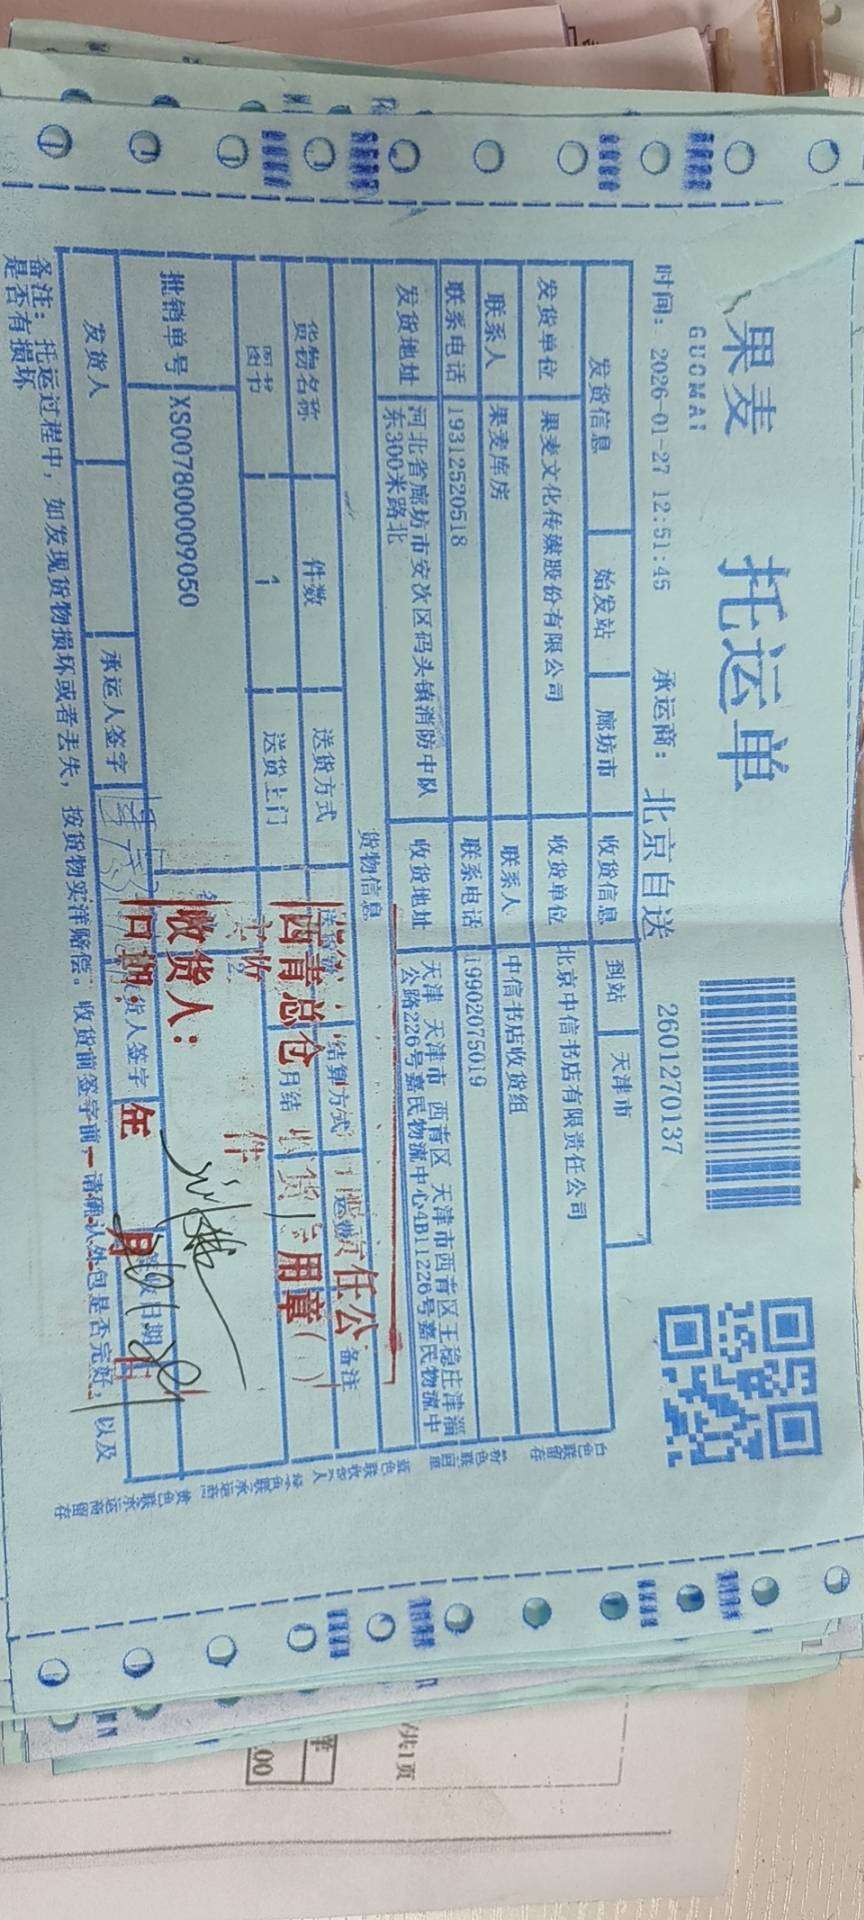 果麦
GUOMAI
托运单
时间: 2026-01-27 12:51:45 承运商: 北京自送 2601270137
发货信息 始发站 廊坊市 收货信息 到站 天津市
发货单位 果麦文化传媒股份有限公司 收货单位 北京中信书店有限责任公司
联系人 果麦库房 联系人 中信书店收货组
联系电话 19312520518 联系电话 19902075019
发货地址 河北省廊坊市安次区码头镇消防中队东300米路北 收货地址 天津 天津市 西青区 天津市西青区王稳庄津淄公路226号嘉民物流中心4B11226号嘉民物流中
货物信息
货物名称 件数 送货方式 结算方式 备注
图书 1 送货上门 月结
批销单号 XS007800009050
发货人 承运人签字 货人签字 日期
备注: 托运过程中, 如发现货物损坏或者丢失, 按货物实洋赔偿。收货前签字前, 请确认外包是否完好, 以及
是否有损坏
任公
西青总仓 货 用章( )
实收 件
收货人:
日期: 年 月 日
白色联留存
粉色联回单
蓝色联收货人
绿色联承运商
黄色联承运商留存
共1页
.00